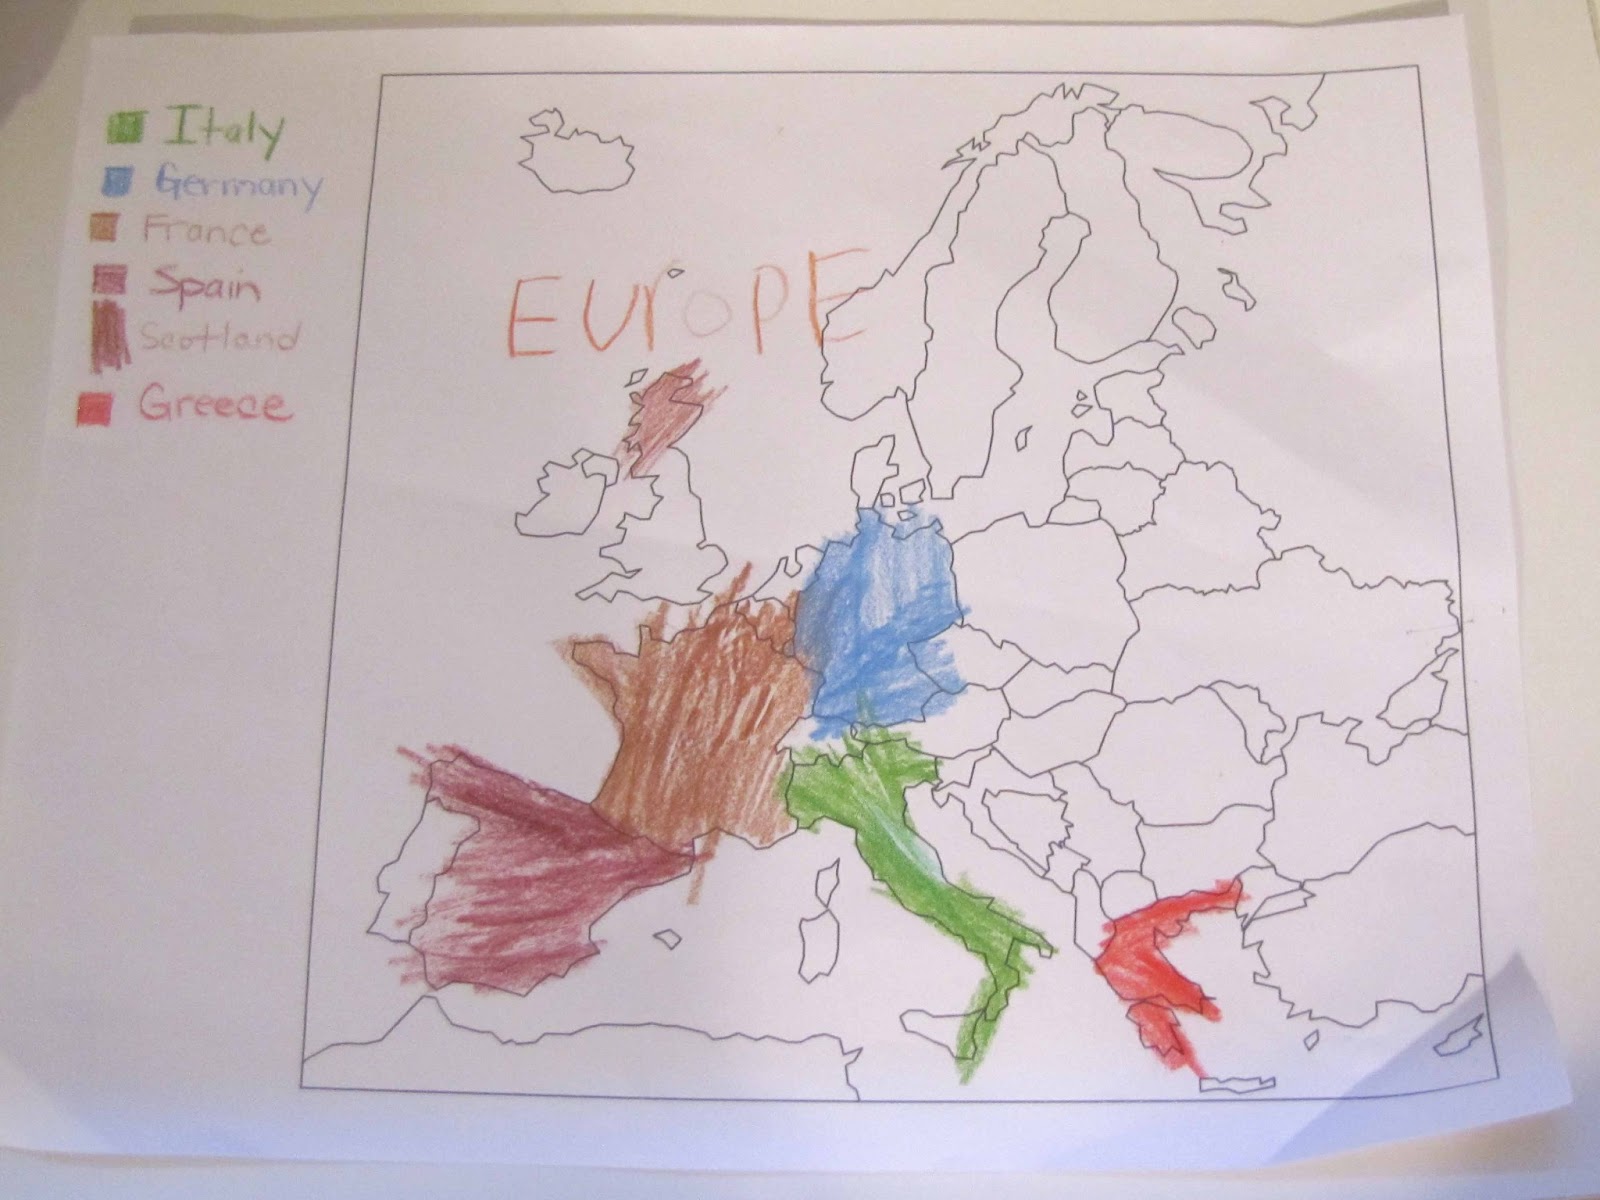 Italy
Germany
France
Spain
Scotland
Greece
EUroPE